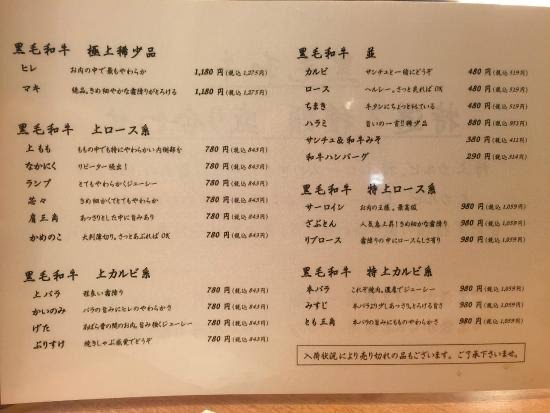 黒毛和牛 極上稀少品
ヒレ お肉の中で最もやわらか 1,180円(税込1,275円)
マキ 絶品。きめ細やかな霜降りがとろける 1,180円(税込1,275円)
黒毛和牛 上ロース系
上もも ももの中でも特にやわらかい内側部を 780円(税込843円)
なかにく リピーター続出! 780円(税込843円)
ランプ とてもやわらかくジューシー 780円(税込843円)
きめ細かくてとてもやわらか 780円(税込843円)
肩三角 あっさりとした中に旨みあり 780円(税込843円)
かめのこ 大判薄切り。さっとあぶればOK 780円(税込843円)
黒毛和牛 上カルビ系
上バラ 程良い霜降り 780円(税込843円)
かいのみ バラの旨みにヒレのやわらかさ 780円(税込843円)
げた あばら骨の間のお肉。旨み強くジューシー 780円(税込843円)
ぶりすけ 焼きしゃぶ感覚でどうぞ 780円(税込843円)
黒毛和牛 並
カルビ サンチュと一緒にどうぞ 480円(税込519円)
ロース ヘルシー。さっと炙ればOK 480円(税込519円)
ちまき 牛タンにちょっと似ている 480円(税込519円)
ハラミ 旨いの一言!!稀少品 880円(税込951円)
サンチュ&和牛みそ 380円(税込411円)
和牛ハンバーグ 290円(税込314円)
黒毛和牛 特上ロース系
サーロイン お肉の王様。最高級 980円(税込1,059円)
ざぶとん 人気急上昇!きめ細かな霜降り 980円(税込1,059円)
リブロース 霜降りの中にロースらしさ有り 980円(税込1,059円)
黒毛和牛 特上カルビ系
本バラ これぞ焼肉。濃厚でジューシー 980円(税込1,059円)
みすじ 本バラより少しあっさり。とろける旨さ 980円(税込1,059円)
とも三角 本バラの旨みにもものやわらか 980円(税込1,059円)
入荷状況により売り切れの品もございます。ご了承下さいませ。